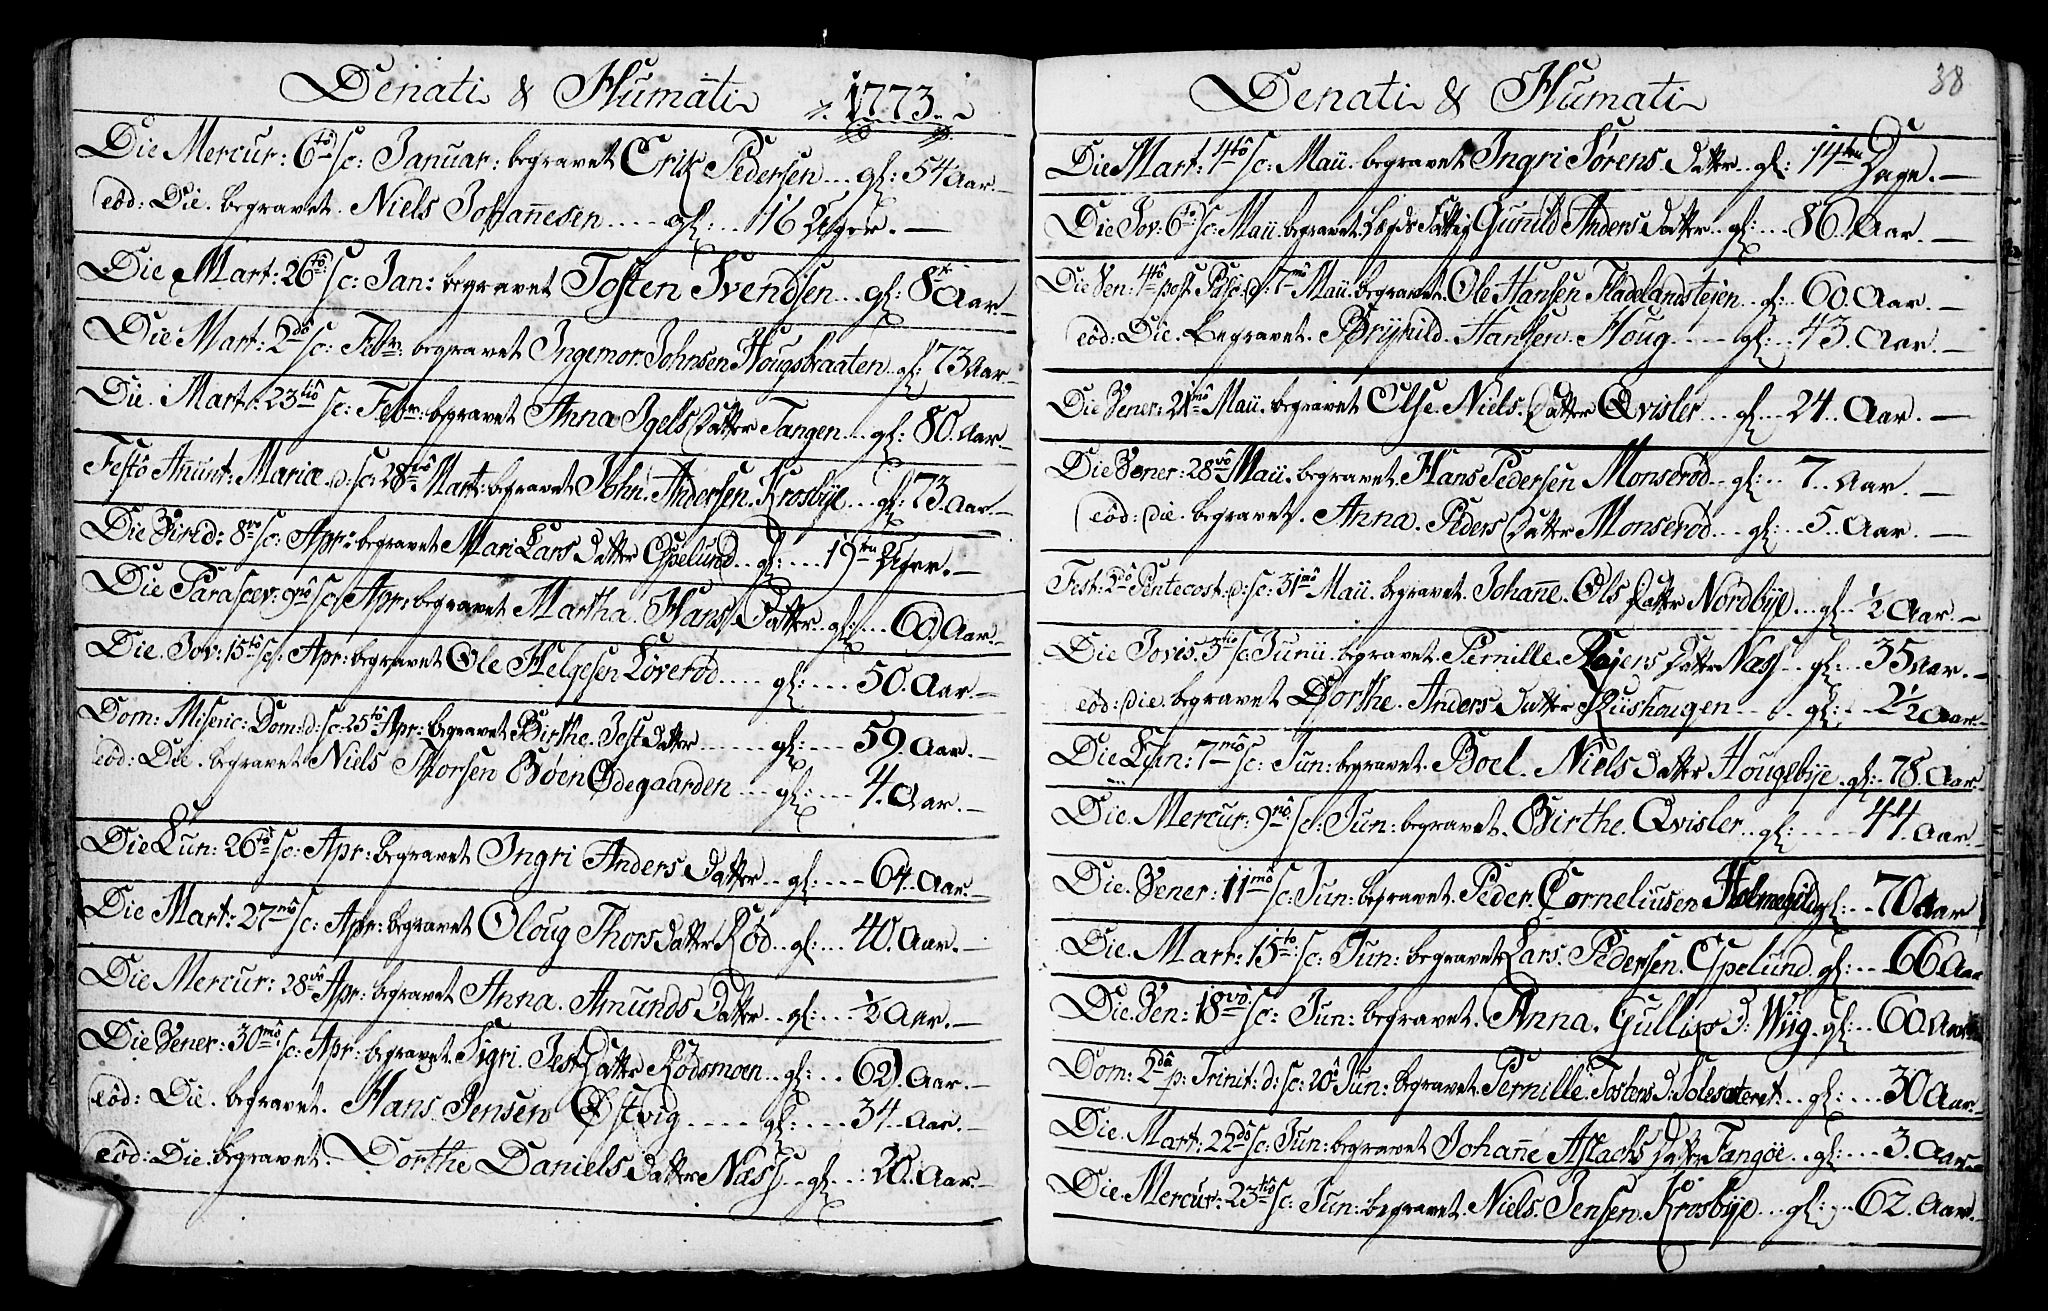 Denati & Humati 1773.
Die Mercur: 6to sc: Januar: begravet Erik Pedersen... gl: 54 Aar.
eod: Die. begravet. Niels Johannesen.... gl:... 16 Uger.
Die Mart: 26to sc: Jan: begravet Tosten Svendsen... gl: 8 Aar
Die Mart: 2do sc: Febr: begravet Ingemor Johnsen Hougsbraaten.. gl: 73 Aar
Die. Mart: 23tio sc: Febr: begravet Anna Igels Datter Tangen... gl: 80. Aar
Festo Anunt: Mariæ. d: sc: 28vo Mart: begravet John. Andersen. Krosbÿe... gl: 73 Aar.
Die Virid: 8vo sc: Apr: begravet Mari Lars Datter Espelund.. gl:.... 19ten Uger.
Die Parascev: 9no sc: Apr: begravet Martha. Hans Datter.. gl:... 60. Aar.
Die. Jov: 15to sc: Apr: begravet Ole Helgesen Løverød..... gl:.... 50. Aar.
Dom: Miseric: Dom: d: sc: 25to Apr: begravet Birthe. Jest Datter...... gl:.... 59. Aar.
eod: Die. begravet Niels Thorsen Bøen Ødegaarden... gl:.... 4. Aar.
Die Lun: 26to sc: Apr: begravet Ingri Anders Datter.. gl:.... 64. Aar.
Die Mart: 27mo sc: Apr: begravet Oloug Thors Datter Rød.. gl:... 40. Aar.
Die Mercur: 28vo Apr: begravet Anna. Amunds Datter.. gl:.... ½ Aar.
Die Vener: 30mo sc: Apr: begravet. Sigri. Jest Datter Rødsmoen.. gl:... 62. Aar.
eod: Die. begravet. Hans Jensen Østvig..... gl:.... 34. Aar.
eod: Die. begravet. Dorthe Daniels Datter Næss... gl:... 20. Aar.
Denati & Humati
38
Die Mart: 4to sc: Maii. begravet Ingri Sørens. Datter.. gl: 14ten Dage.
Die Jov: 6to sc: Maii. begravet. Gunild Anders Datter.. gl:.... 86. Aar.
Die Ven: 4to post Pasc: d: 7mo Maii. begravet. Ole Hansen Fladelandsteien.. gl:.. 60. Aar.
eod: Die. begravet. Brÿnild. Hansen. Houg..... gl:... 43. Aar.
Die Vener: 21mo Maii. begravet Else. Niels. Datter Qvisler... gl:... 24.. Aar.
Die Vener: 28vo Maii. begravet. Hans Pedersen Monserød.. gl:.. 7. Aar.
eod: die. begravet. Anna. Peders Datter Monserød... gl:... 5. Aar.
Fest: 2do Pentecost. d: sc: 31mo Maii begravet. Johanne. Ols Datter Nordbÿe... gl:.. ½ Aar.
Die Jovis. 3tio sc: Junii. begravet. Pernille. Rejers Datter Næss... gl:.. 35 Aar.
eod: die. begravet Dorthe. Anders Datter Rushougen.... gl:... 2½ Aar.
Die Lun: 7mo sc: Jun: begravet. Boel. Niels Datter Hougsbÿe. gl:. 78. Aar.
Die. Mercur: 9no sc: Jun: begravet. Birthe. Qvisler.. gl:..... 44. Aar.
Die. Vener: 11mo sc: Jun: begravet. Peder. Corneliusen gl:... 70 Aar
Die. Mart: 15to sc: Jun: begravet Lars. Pedersen. Espelund. gl:... 66 Aar
Die. Ven: 18vo sc: Jun: begravet. Anna. D: Wiig. gl:... 60. Aar
Dom: 2do p: Trinit: d: sc: 20o Jun: begravet. Pernille. Tostens D: Solesæteret.. gl:.... 30 Aar.
Die. Mart: 22do sc: Jun: begravet Johanne Aslachs Datter Tangøe.. gl:.... 3. Aar.
Die. Mercur: 23tio sc: Jun: begravet. Niels. Jensen. Krosbÿe... gl:... 62. Aar.